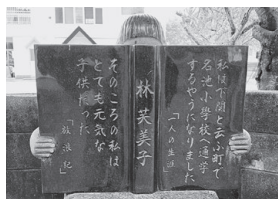 私は下関と云ふ町で
名池小學校へ通学
するやうになりました
「一人の生涯」
林芙美子
そのころの私は
とても元気な
子供だった
「放浪記」